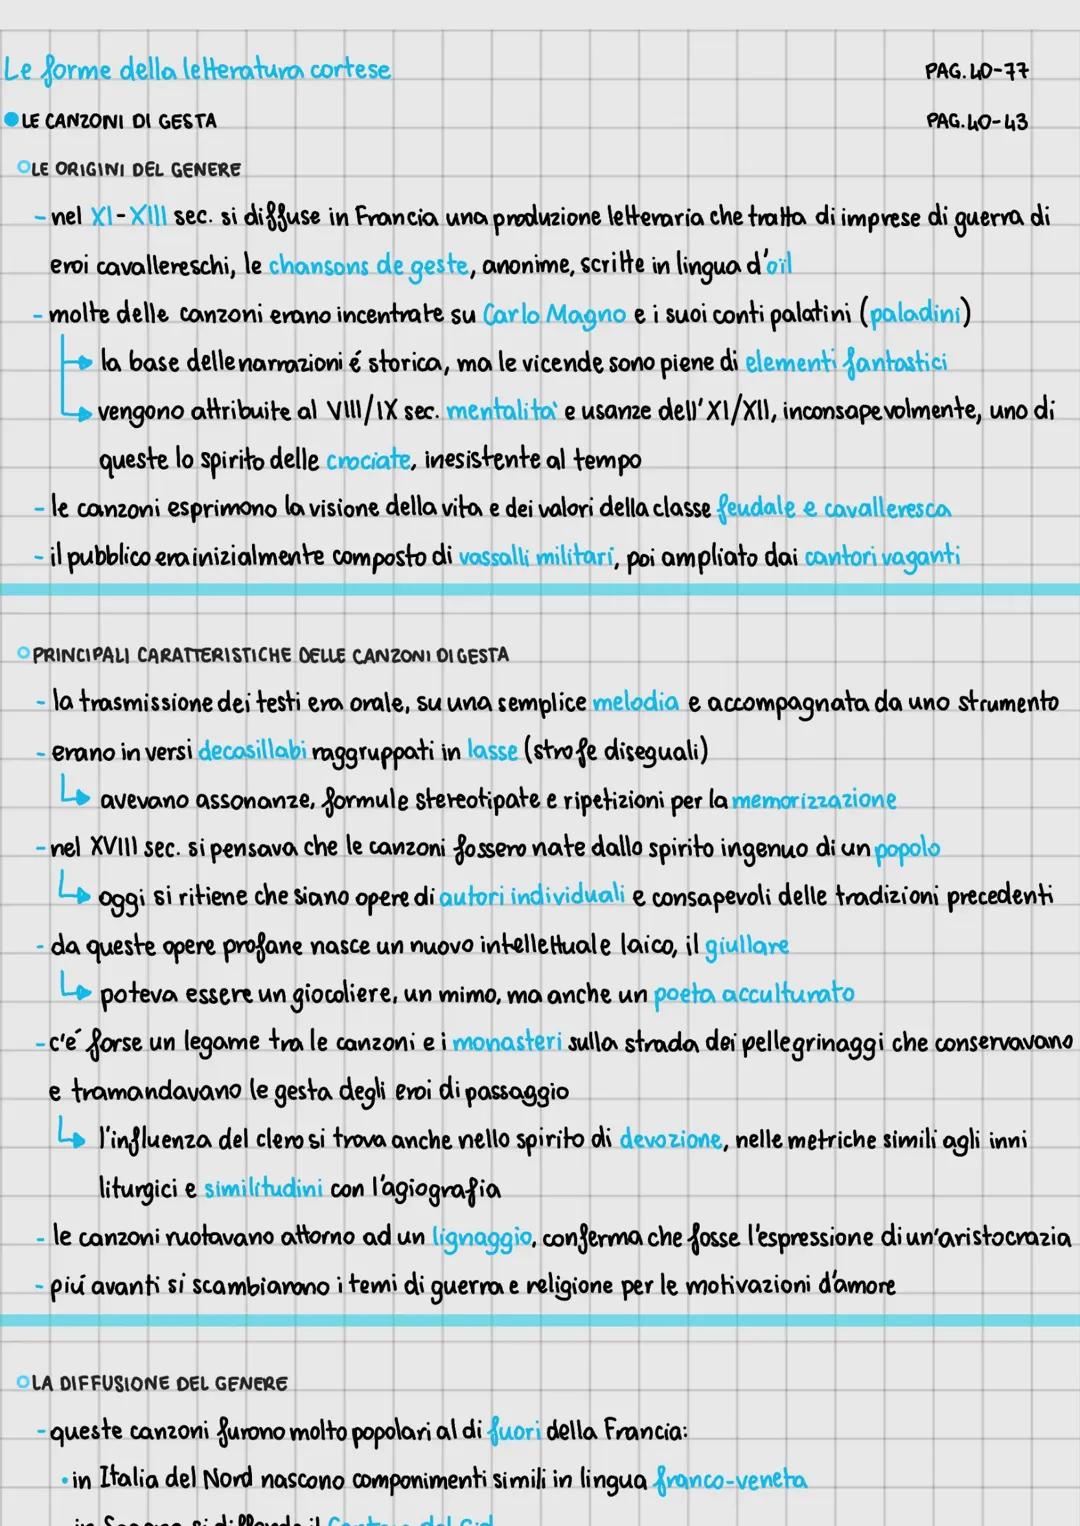 Le forme della letteratura cortese PAG. 40-77
LE CANZONI DI GESTA PAG. 40-43
LE ORIGINI DEL GENERE
- nel XI-XIII sec. si diffuse in Francia una produzione letteraria che tratta di imprese di guerra di
eroi cavallereschi, le chansons de geste, anonime, scritte in lingua d'oïl
- molte delle canzoni erano incentrate su Carlo Magno e i suoi conti palatini (paladini)
la base delle narrazioni é storica, ma le vicende sono piene di elementi fantastici
vengono attribuite al VIII/IX sec. mentalita' e usanze dell'XI/XII, inconsapevolmente, uno di
queste lo spirito delle crociate, inesistente al tempo
- le canzoni esprimono la visione della vita e dei valori della classe feudale e cavalleresca
- il pubblico era inizialmente composto di vassalli militari, poi ampliato dai cantori vaganti
PRINCIPALI CARATTERISTICHE DELLE CANZONI DI GESTA
- la trasmissione dei testi era orale, su una semplice melodia e accompagnata da uno strumento
- erano in versi decasillabi raggruppati in lasse (strofe diseguali)
avevano assonanze, formule stereotipate e ripetizioni per la memorizzazione
- nel XVIII sec. si pensava che le canzoni fossero nate dallo spirito ingenuo di un popolo
oggi si ritiene che siano opere di autori individuali e consapevoli delle tradizioni precedenti
- da queste opere profane nasce un nuovo intellettuale laico, il giullare
poteva essere un giocoliere, un mimo, ma anche un poeta acculturato
- c'é forse un legame tra le canzoni e i monasteri sulla strada dei pellegrinaggi che conservavano
e tramandavano le gesta degli eroi di passaggio
l'influenza del clero si trova anche nello spirito di devozione, nelle metriche simili agli inni
liturgici e similitudini con l'agiografia
- le canzoni ruotavano attorno ad un lignaggio, conferma che fosse l'espressione di un'aristocrazia
- piú avanti si scambiarono i temi di guerra e religione per le motivazioni d'amore
LA DIFFUSIONE DEL GENERE
- queste canzoni furono molto popolari al di fuori della Francia:
• in Italia del Nord nascono componimenti simili in lingua franco-veneta
in Spagna si diffonde il Cantare del Cid